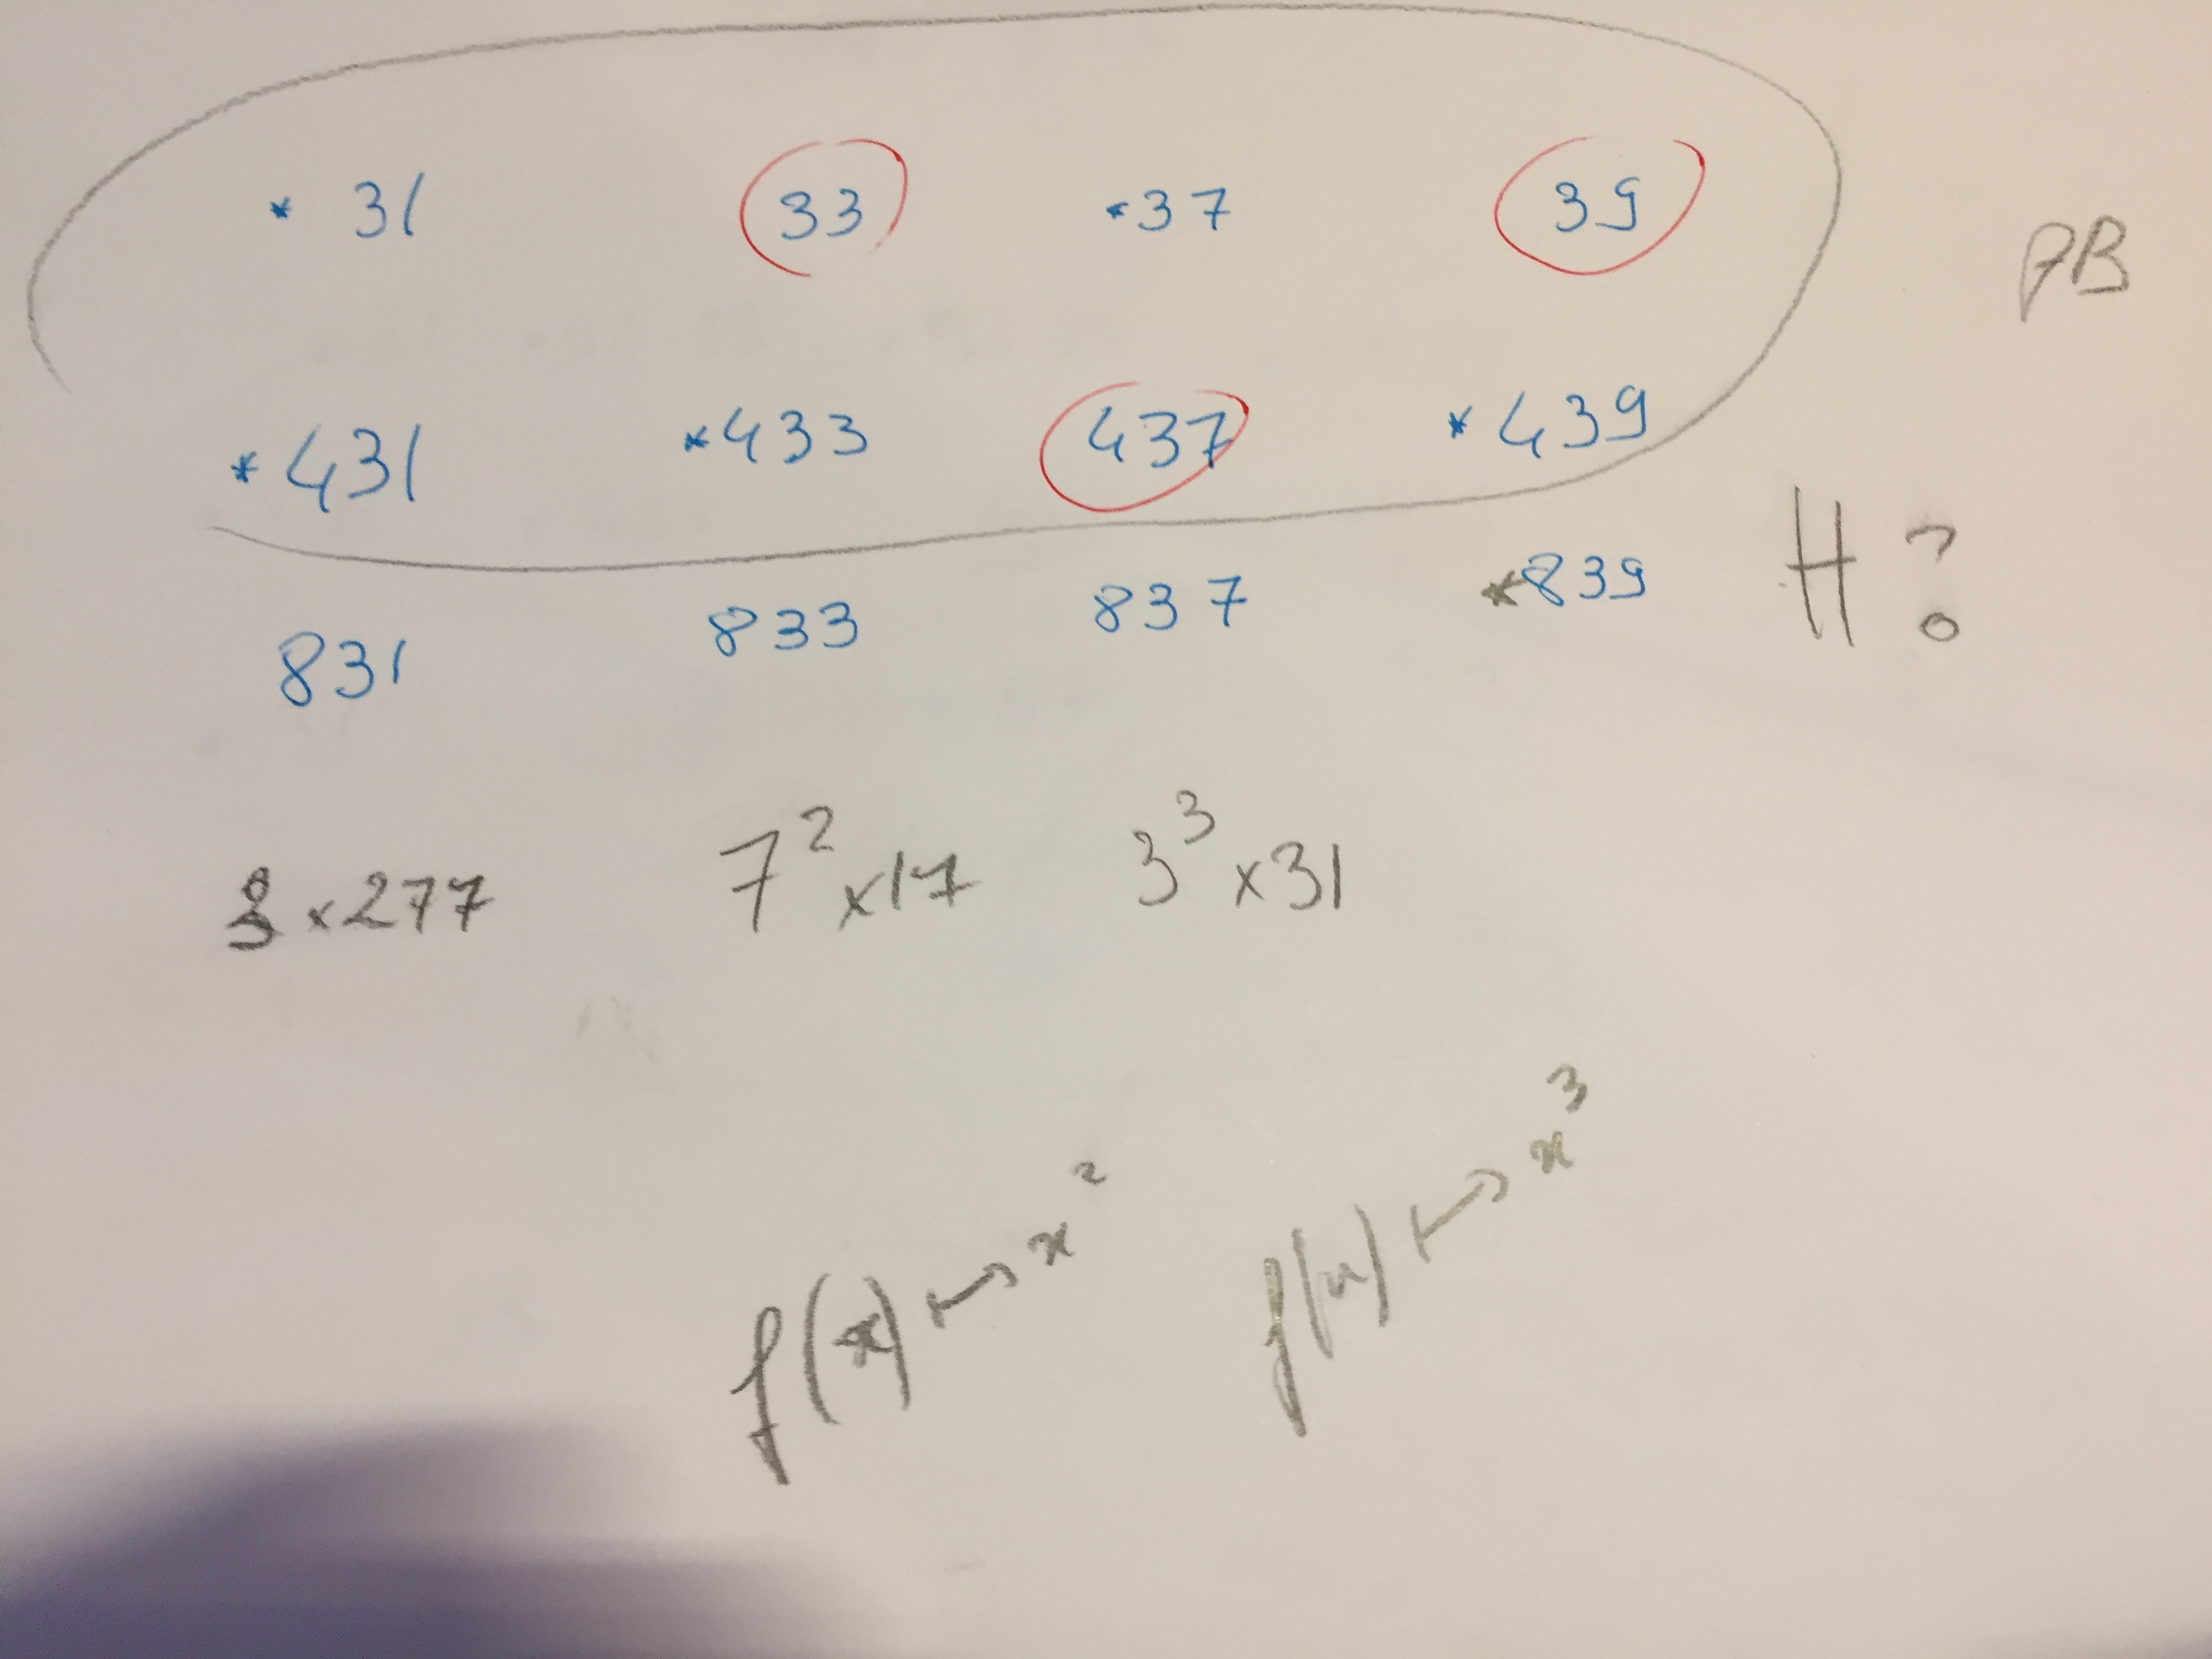 * 31 33 * 37 39
PB
* 431 * 433 437 * 439
H ?
831 833 837 * 839
3 x 277 7² x 17 3³ x 31
f(x) ↦ x² f(x) ↦ x³